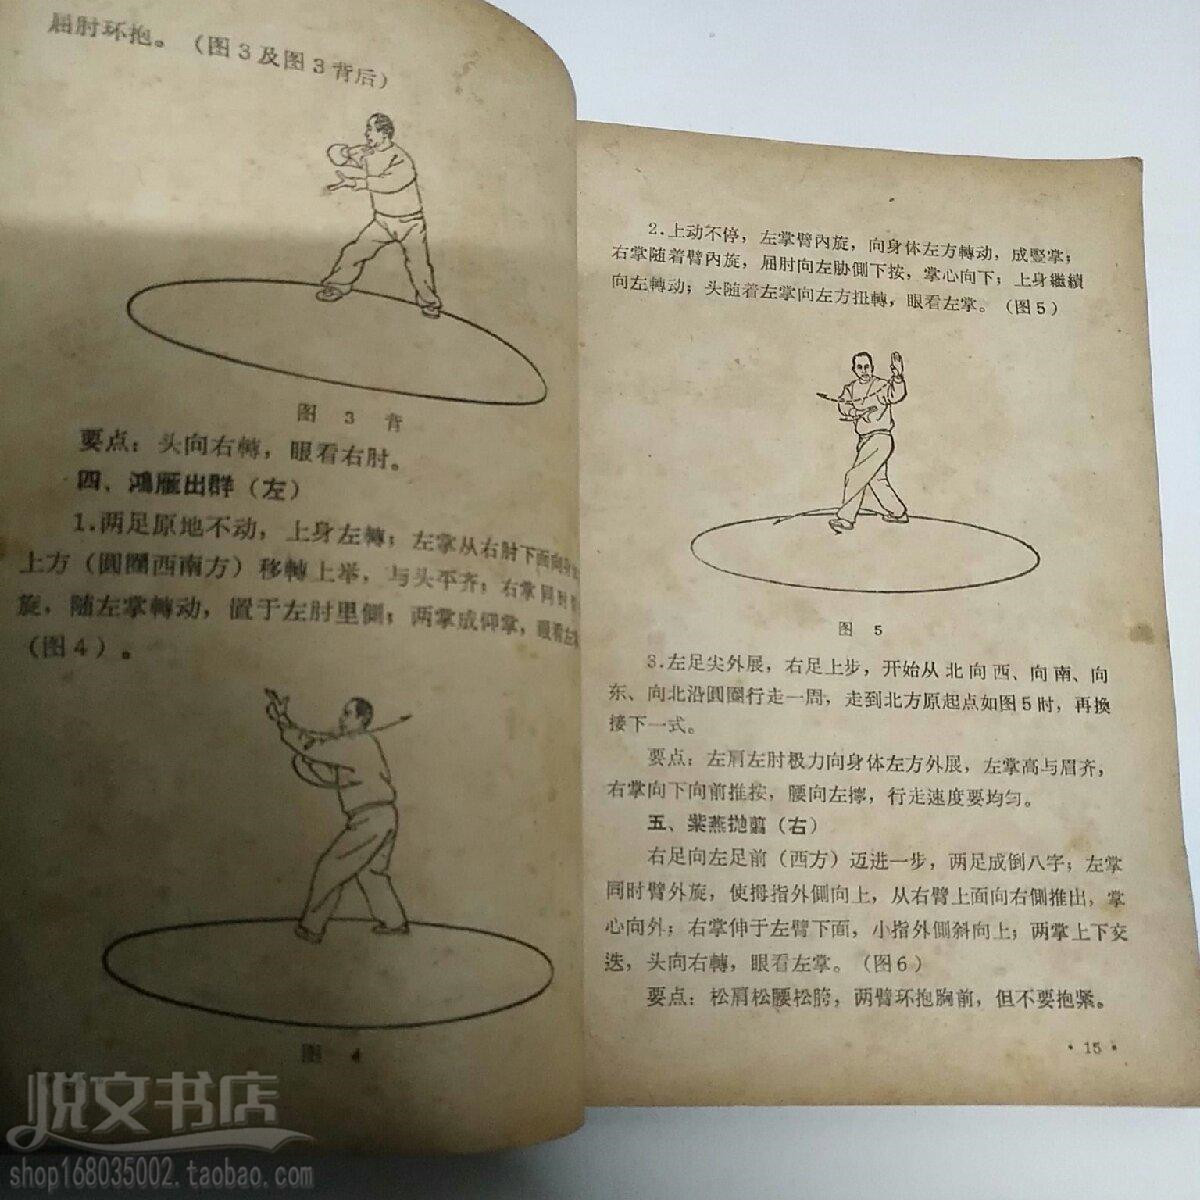 屈肘环抱。（图3及图3背后）
图 3 背
要点：头向右轉，眼看右肘。
四、鴻雁出群（左）
1.两足原地不动，上身左轉；左掌从右肘下面向
上方（圓圈西南方）移轉上举，与头平齐；右掌同时
旋，随左掌轉动，置于左肘里側；两掌成仰掌，眼看左
（图4）。
图 4
2.上动不停，左掌臂內旋，向身体左方轉动，成竪掌；
右掌随着臂內旋，屈肘向左胁側下按，掌心向下；上身繼續
向左轉动；头随着左掌向左方扭轉，眼看左掌。（图5）
图 5
3.左足尖外展，右足上步，开始从北向西、向南、向
东、向北沿圓圈行走一周，走到北方原起点如图5时，再換
接下一式。
要点：左肩左肘极力向身体左方外展，左掌高与眉齐，
右掌向下向前推按，腰向左擰，行走速度要均匀。
五、紫燕抛剪（右）
右足向左足前（西方）迈进一步，两足成倒八字；左掌
同时臂外旋，使拇指外側向上，从右臂上面向右側推出，掌
心向外；右掌伸于左臂下面，小指外側斜向上；两掌上下交
迭，头向右轉，眼看左掌。（图6）
要点：松肩松腰松胯，两臂环抱胸前，但不要抱紧。
·15·
悦文书店
shop168035002.taobao.com